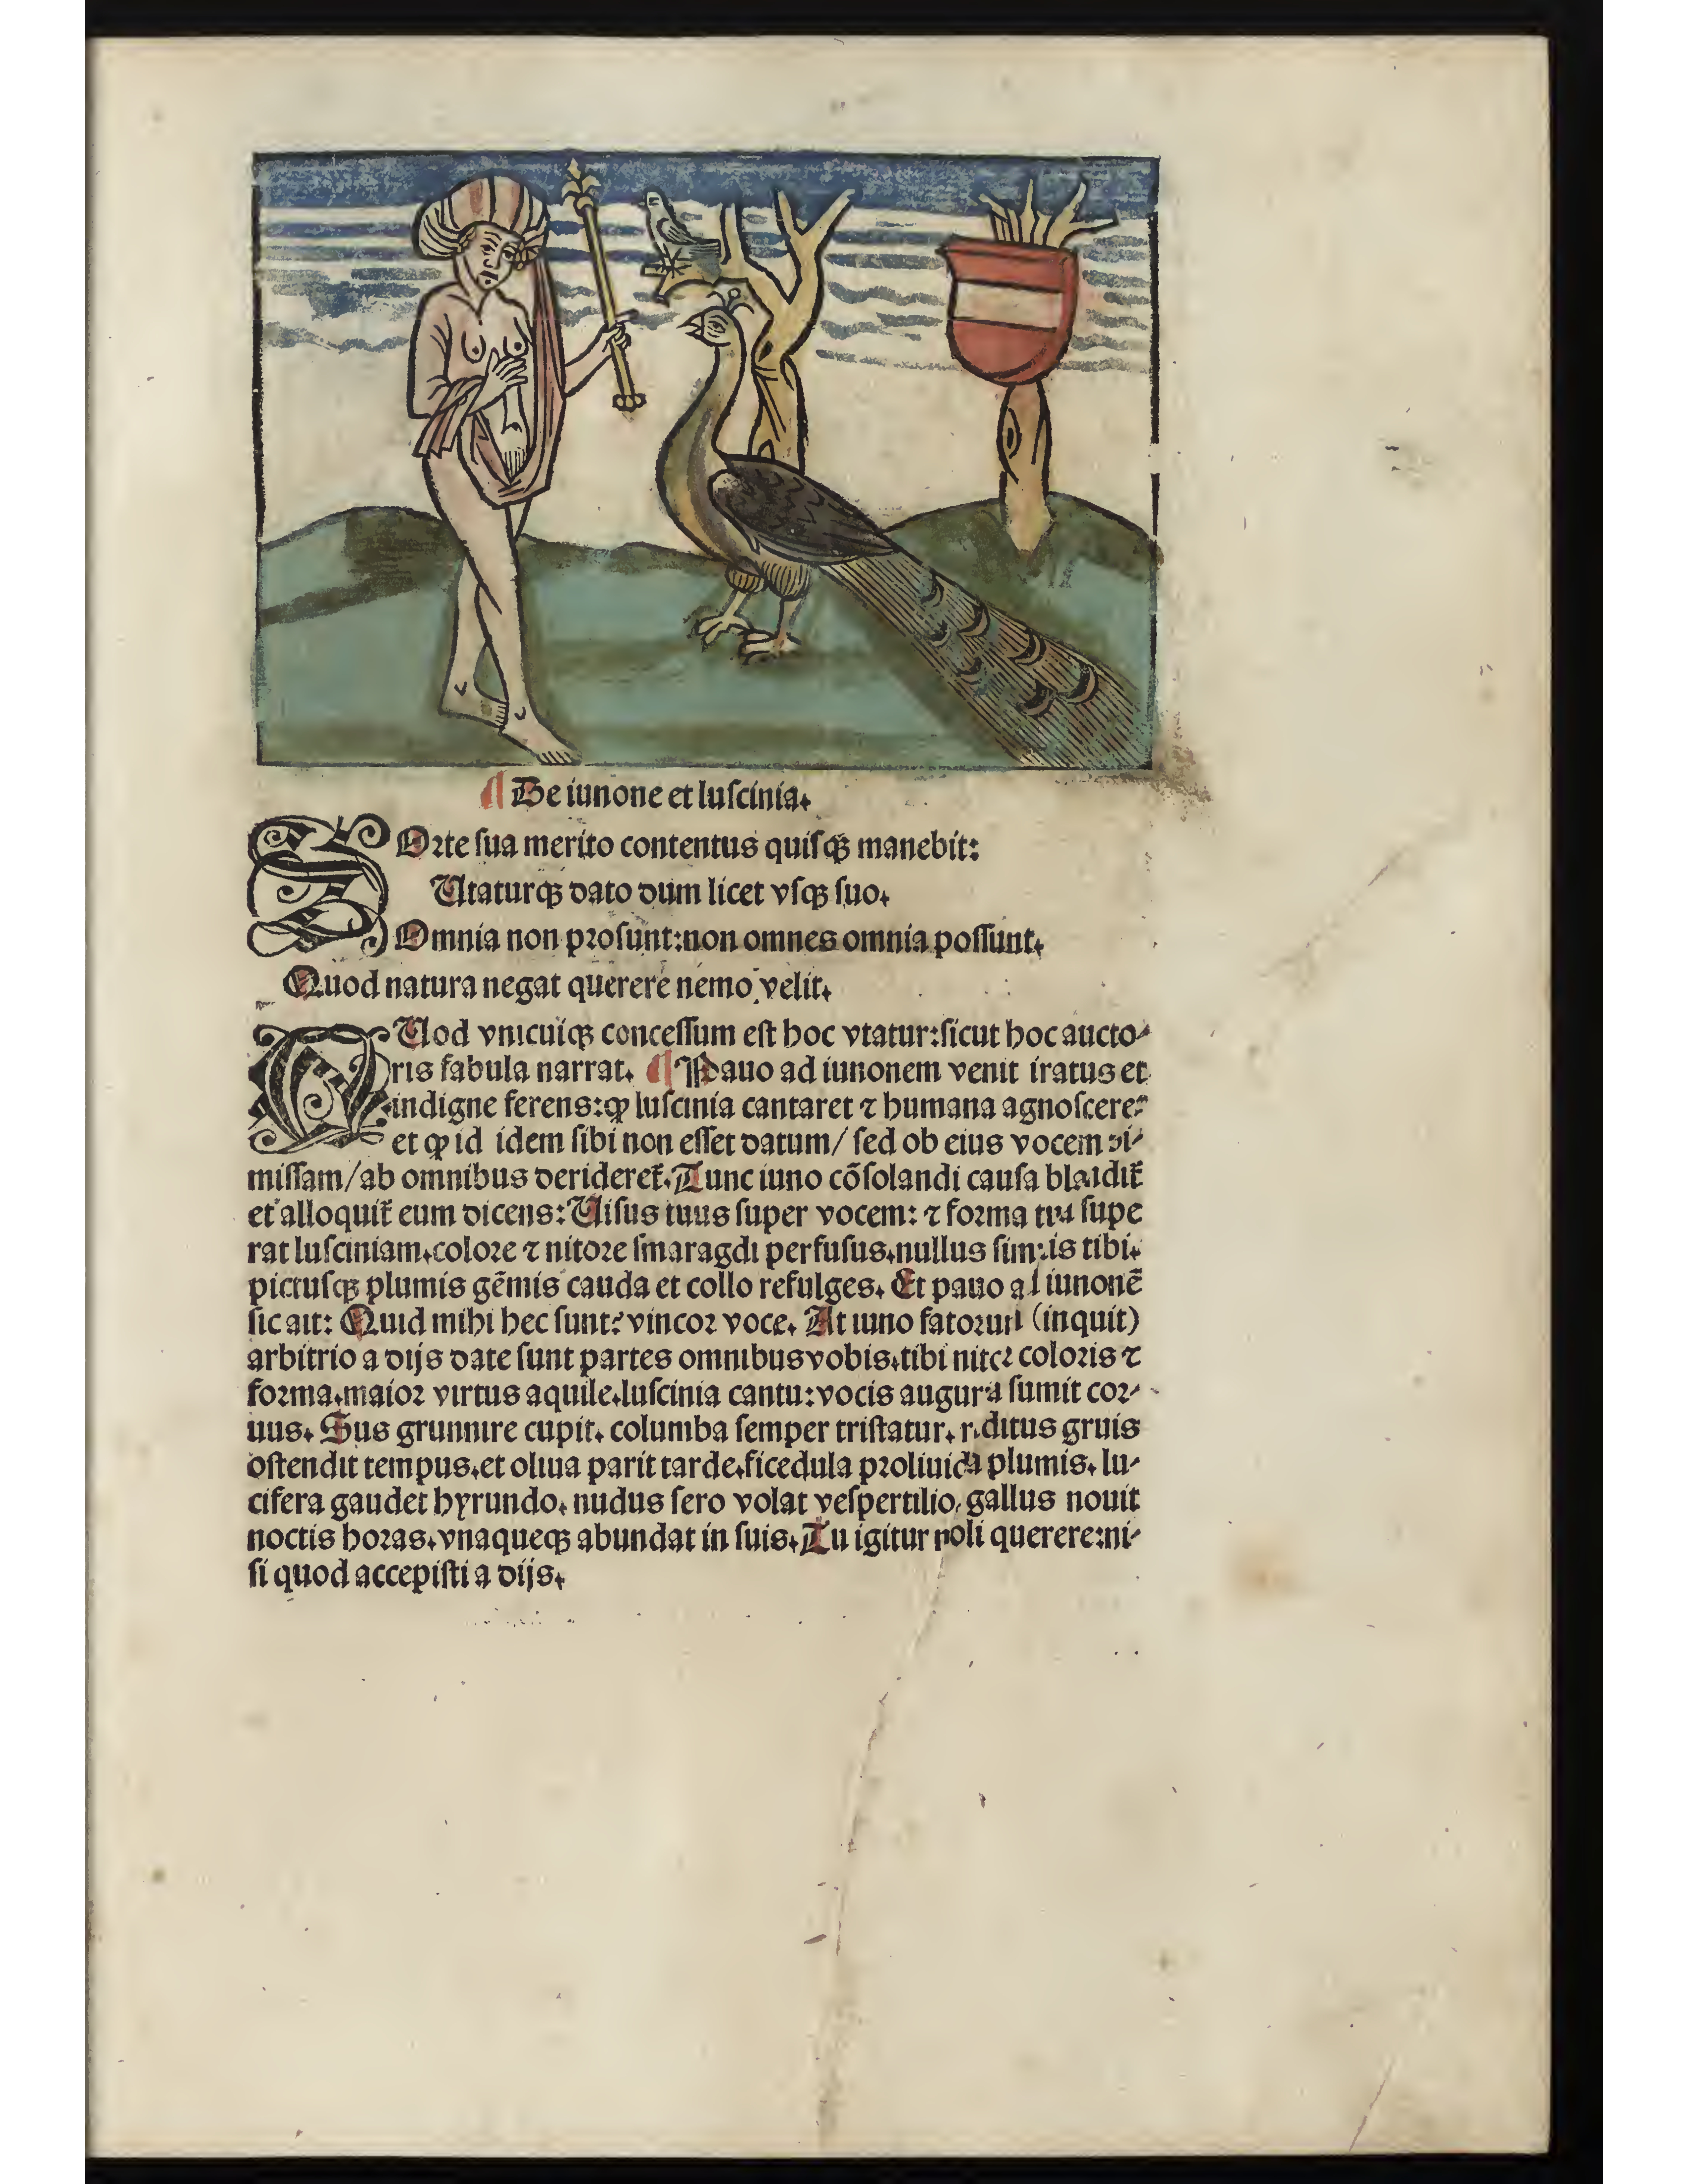 ¶ De iunone et luſcinia.
SOrte ſua merito contentus quiſqꝫ manebit:
Utaturqꝫ dato dum licet vſqꝫ ſuo.
Omnia non proſunt:non omnes omnia poſſunt.
Quod natura negat querere nemo velit.
QUod vnicuiqꝫ conceſſum eſt hoc vtatur:ſicut hoc aucto⸗
ris fabula narrat. ¶ Pauo ad iunonem venit iratus et
indigne ferens:ꝙ luſcinia cantaret ⁊ humana agnoſcere:
et ꝙ id idem ſibi non eſſet datum/ ſed ob eius vocem di⸗
miſſam/ab omnibus derideret᷑. Tunc iuno cōſolandi cauſa blandit᷑
et alloquit᷑ eum dicens: Uiſus tuus ſuper vocem: ⁊ forma tua ſupe
rat luſciniam.colore ⁊ nitore ſmaragdi perfuſus.nullus ſimilis tibi.
pictuſqꝫ plumis gēmis cauda et collo refulges. Et pauo ad iunonē
ſic ait: Quid mihi hec ſunt? vincor voce. At iuno fatorum (inquit)
arbitrio a dijs date ſunt partes omnibus vobis.tibi nitor coloris ⁊
forma.maior virtus aquile.luſcinia cantu:vocis augura ſumit cor⸗
uus. Sus grunnire cupit. columba ſemper triſtatur. reditus gruis
oſtendit tempus.et oliua parit tarde.ficedula proliuida plumis. lu⸗
cifera gaudet hyrundo. nudus ſero volat veſpertilio. gallus nouit
noctis horas.vnaqueqꝫ abundat in ſuis. Tu igitur noli querere:ni⸗
ſi quod accepiſti a dijs.